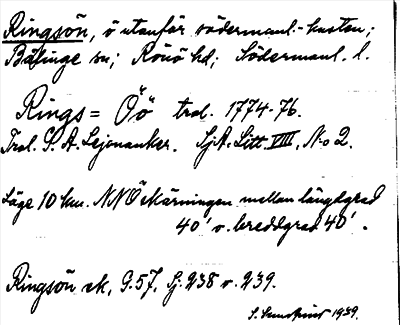 Ringsön, ö utanför södermanl.-kusten;
Bälinge sn; Rönö hd; Södermanl. l.
Rings = Öö trol. 1774-76.
Trol. S. A. Lejonanker. SjA. Litt VIII, No 2.
Läge 10 km. NNÖ skärningen mellan längdgrad
40' o. breddgrad 40'.
Ringsön ek, G. 57, Sj. 238 o. 239.
1939.